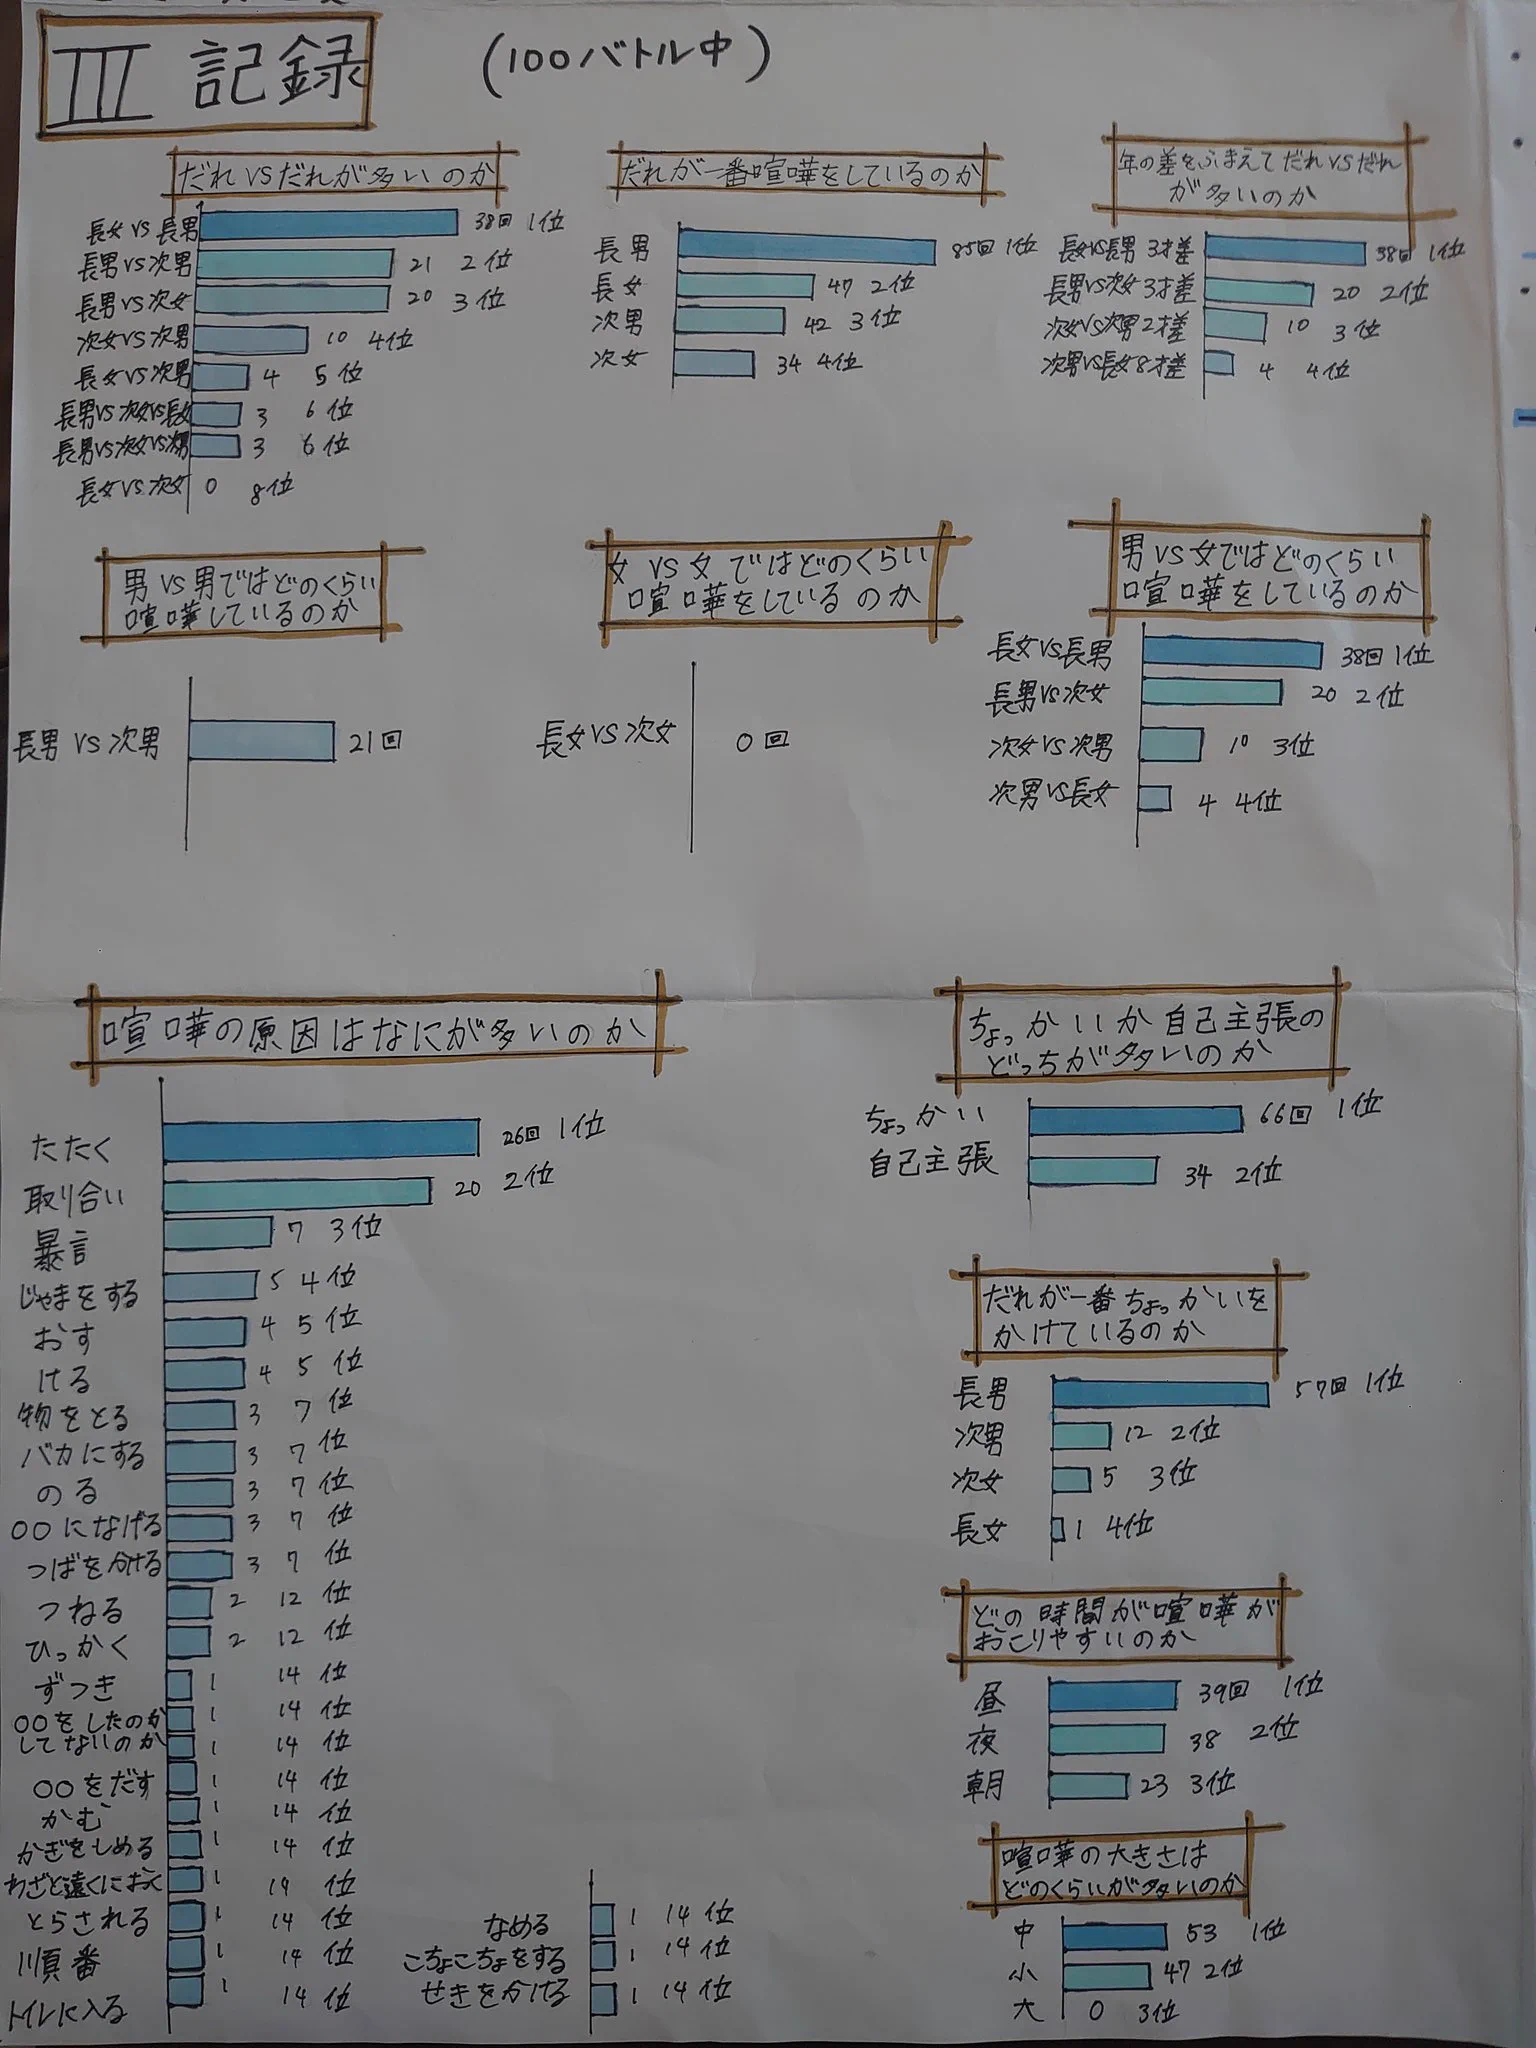 III 記録
(100バトル中)
だれVSだれが多いのか
長女VS長男 38回 1位
長男VS次男 21 2位
長男VS次女 20 3位
次女VS次男 10 4位
長女VS次男 4 5位
長男VS次女VS長女 3 6位
長男VS次女VS次男 3 6位
長女VS次女 0 8位
だれが一番喧嘩をしているのか
長男 85回 1位
長女 47 2位
次男 42 3位
次女 34 4位
年の差をふまえてだれVSだれ
が多いのか
長女VS長男 3才差 38回 1位
長男VS次女 3才差 20 2位
次女VS次男 2才差 10 3位
次男VS長女 8才差 4 4位
男VS男ではどのくらい
喧嘩しているのか
長男VS次男 21回
女VS女ではどのくらい
喧嘩をしているのか
長女VS次女 0回
男VS女ではどのくらい
喧嘩をしているのか
長女VS長男 38回 1位
長男VS次女 20 2位
次女VS次男 10 3位
次男VS長女 4 4位
喧嘩の原因はなにが多いのか
たたく 26回 1位
取り合い 20 2位
暴言 7 3位
じゃまをする 5 4位
おす 4 5位
ける 4 5位
物をとる 3 7位
バカにする 3 7位
のる 3 7位
○○になげる 3 7位
つばを分ける 3 7位
つねる 2 12位
ひっかく 2 12位
ずつき 1 14位
○○をしたのか 1 14位
してないのか 1 14位
○○をだす 1 14位
かむ 1 14位
かぎをしめる 1 14位
わざと遠くにおく 1 14位
とらされる 1 14位
順番 1 14位
トイレに入る 1 14位
なめる 1 14位
こちょこちょをする 1 14位
せきをかける 1 14位
ちょっかいか自己主張の
どっちが多いのか
ちょっかい 66回 1位
自己主張 34 2位
だれが一番ちょっかいを
かけているのか
長男 57回 1位
次男 12 2位
次女 5 3位
長女 1 4位
どの時間が喧嘩が
おこりやすいのか
昼 39回 1位
夜 38 2位
朝 23 3位
喧嘩の大きさは
どのくらいが多いのか
中 53 1位
小 47 2位
大 0 3位